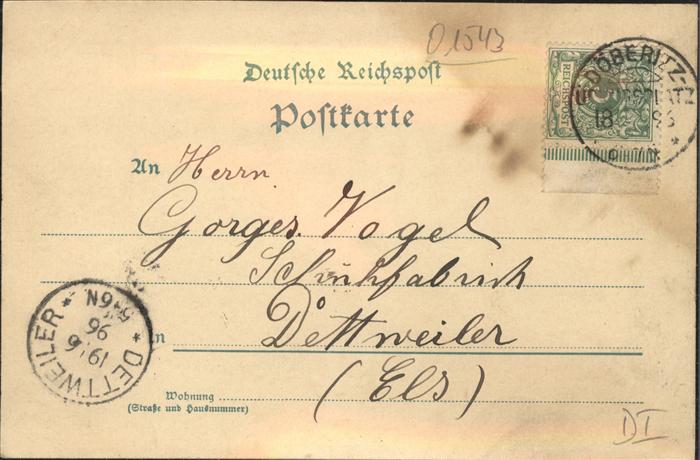 0,1543
Deutsche Reichspost
Postkarte
REICHSPOST
DÖBERITZ
18
An Herrn
Gorges. Vogel
Schuhfabrick
in Dettweiler
(Els)
DETTWEILER
19.6
96
5-6N
Wohnung
(Straße und Hausnummer)
DI